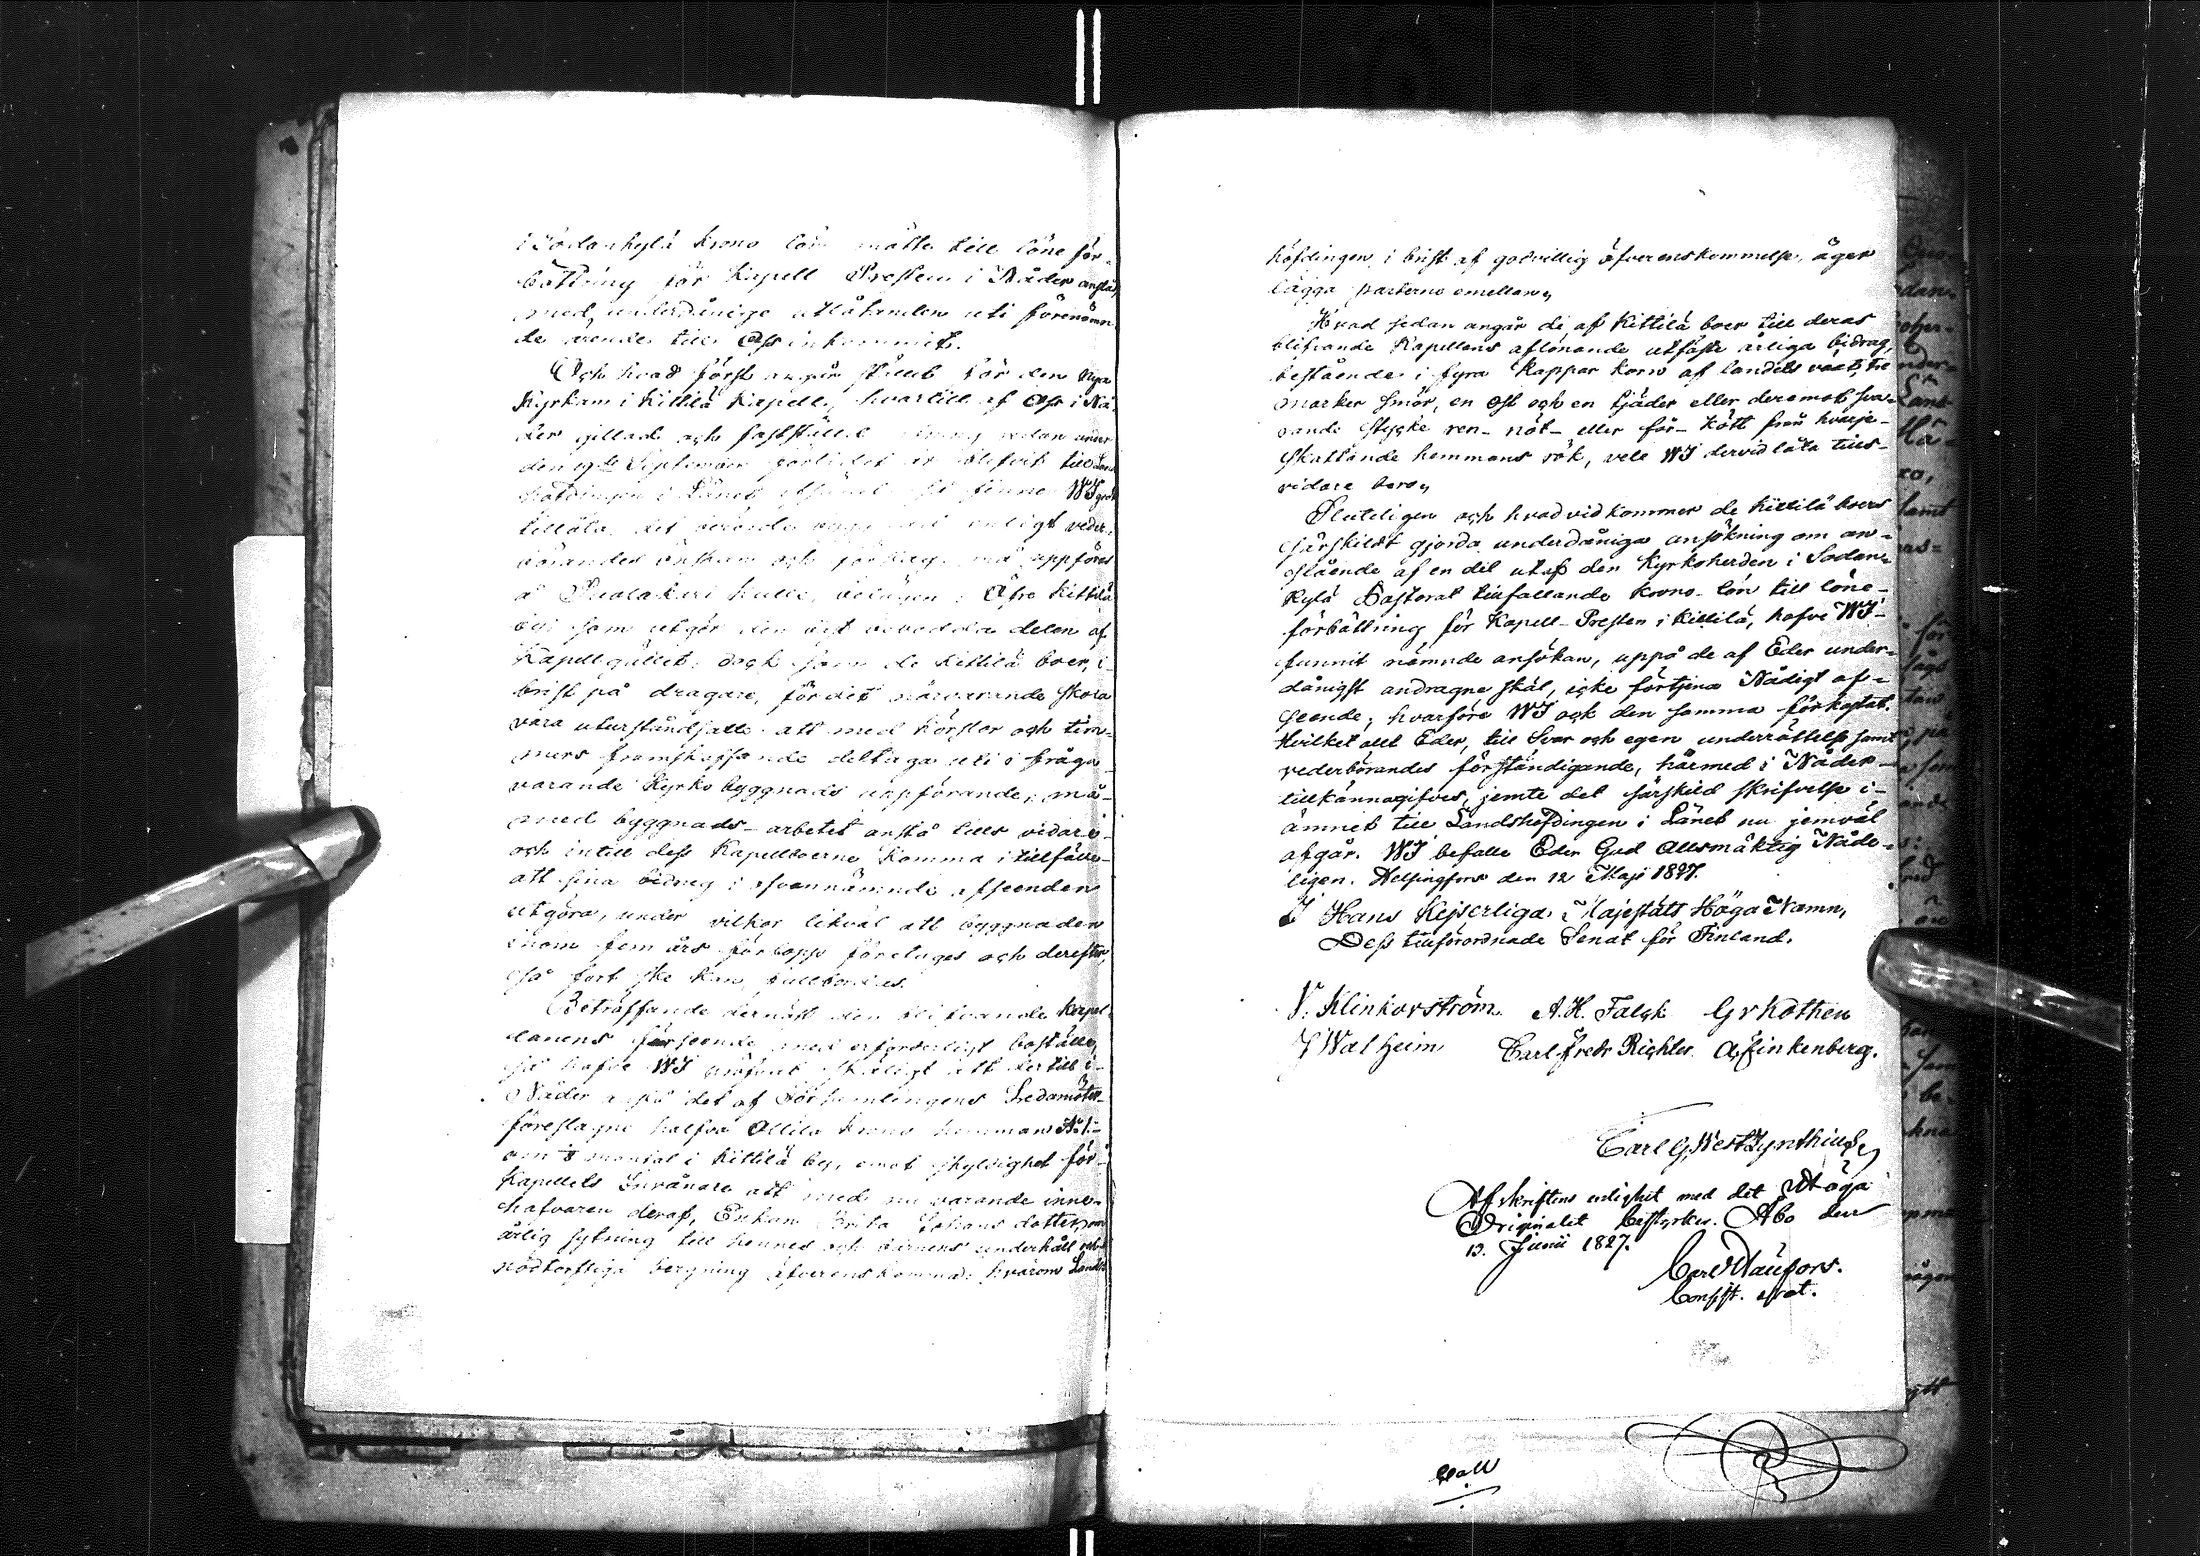 i Sodankylä Krono lön måtte till löne för-
bättring för Kapell Presten i Nåder anslås,
med underdånige utlåtanden uti förenämn-
de ärende till Oss inkommit.
Och hvad först angår stället för den nya
Kyrkan i Kittilä Kapell, hvartill af Oss i Nå-
der gillad och fastställd ritning redan under
den 19de September förlidet år blifvit till Lands-
höfdingen i Länet så finne WI godt
tillåta, det berörde byggnad enligt veder-
börandes önskan och förslag, må uppföras
å kulle, belägen i Öfre Kittilä
by, som utgör den mest bebodda delen af
Kapellgället; dock som de Kittilä boer, i
brist på dragare, för det närvarande skola
vara uturståndsatte att med körslor och tim-
mers framskaffande deltaga uti i fråga-
varande Kyrko byggnads uppförande; må
med byggnads-arbetet anstå tills vidare
och intill dess Kapellboerne komma i tillfälle
att sina bidrag i ofvannämnde afseenden
utgöra, under vilkor likväl att byggnaden
inom fem års förlopp företages och derefter,
så fort ske kan, fullbordas.
Beträffande dernäst den blifvande Kapel-
lanens förseende med erforderligt boställe,
så hafve WI pröfvat skäligt att dertill i
Nåder anslå det af Församlingens Ledamöter
föreslagne halfva Ollila Krono hemman No 1.
om mantal i Kittilä by, emot skyldighet för
Kapellets Invånare att med nu varande inne-
hafvaren deraf, Enkan Brita Johans dotter, om
årlig sytning till hennes och barnens underhåll och
nödtorftiga bergning öfverenskomma, hvarom Lands-
höfdingen, i brist af godvillig öfverenskommelse, äger
lägga parterna emellan,
Hvad sedan angår de af Kittilä boer till deras
blifvande Kapellans aflönande utfäste årliga bidrag,
bestående i fyra Kappar korn af landets växt, tre
marker smör, en ost och en fjäder eller deremot sva-
rande stycke ren- nöt- eller får- kött från hvarje
skattande hemmans rök, vele WI dervid låta tills-
vidare bero,
Sluteligen och hvad vidkommer de Kittilä boers
särskildt gjorda underdåniga ansökning om an-
slående af en del utaf den Kyrkoherden i Sodan-
kylä Pastorat tillfallande Krono-lön till löne-
förbättring för Kapell-Presten i Kittilä, hafve WI
funnit nämnde ansökan, uppå de af Eder under-
dånigst andragne skäl, icke förtjena Nådigt af-
seende; hvarföre WI ock den samma förkastat.
Hvilket allt Eder, till Svar och egen underrättelse samt
vederbörandes förständigande, härmed i Nåder
tillkännagifves, jemte det särskild skrifvelse i
ämnet till Landshöfdingen i Länet nu jemväl
afgår. WI befalle Eder Gud Allsmäktig Nåde-
ligen. Helsingfors den 12 Maji 1827.
I Hans Kejserliga Majestäts Höga Namn,
Dess tillförordnade Senat för Finland.
V. Klinkovström. A. H. Falck G v Kothen
J Walheim Carl Fredr Richter. Finkenberg.
Carl G, West
Afskriftens enlighet med det Höga
Originalet bestyrker. Åbo den
13. Junii 1827.
Carl
Consist.